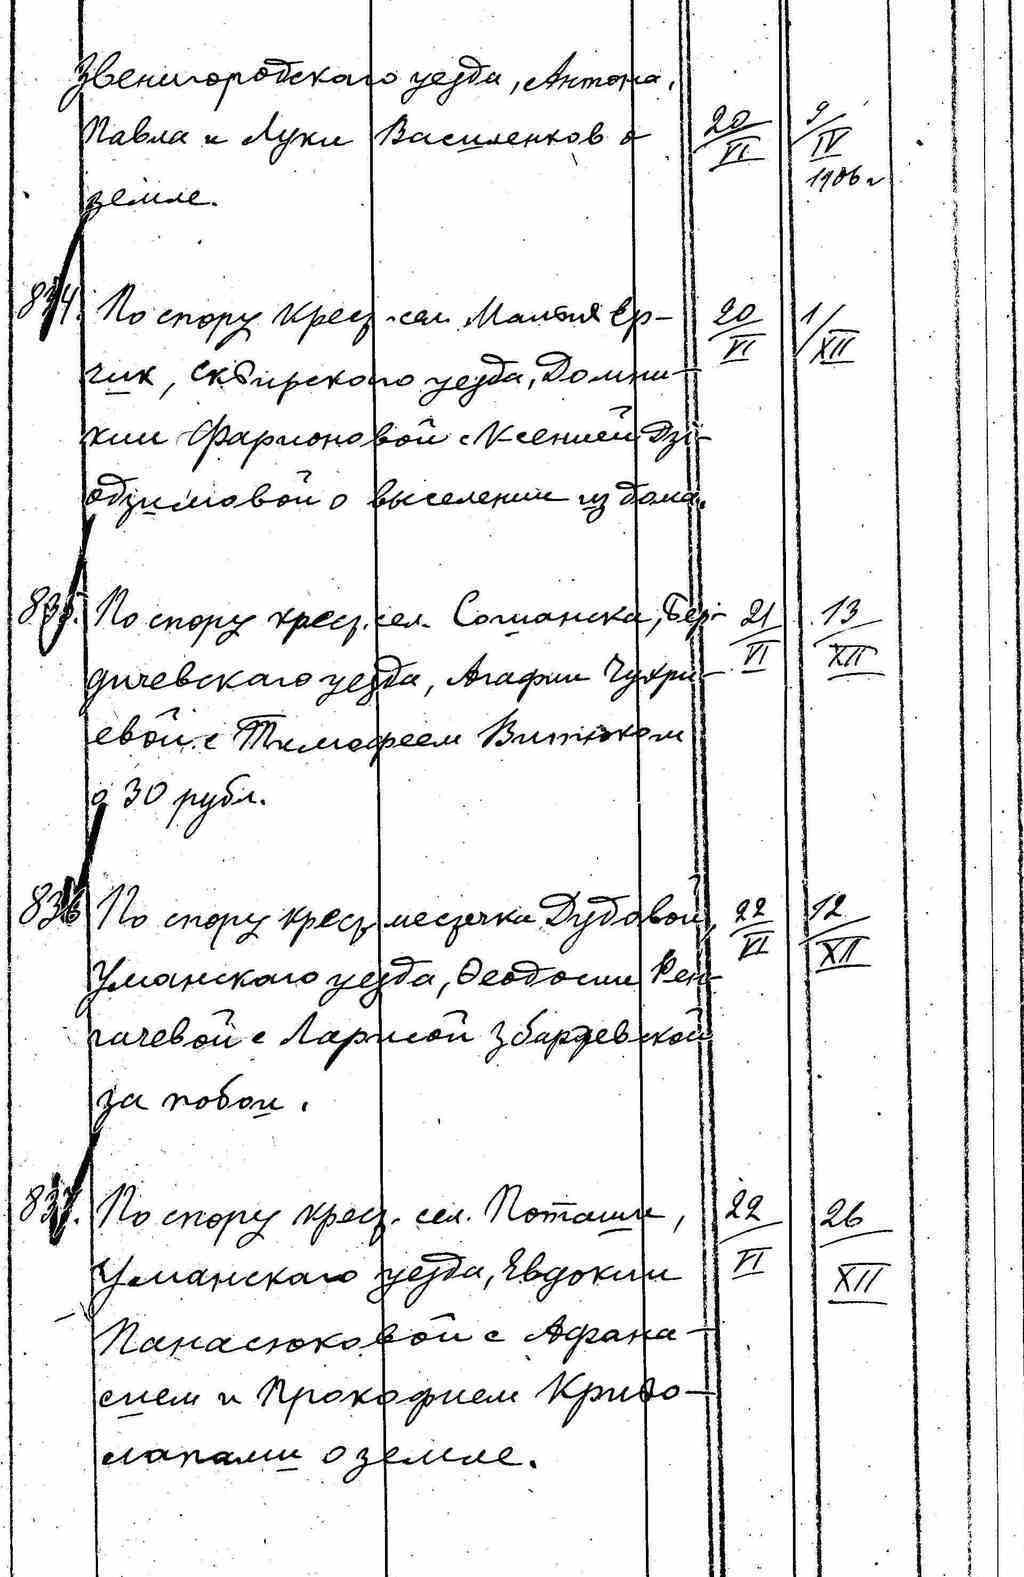 Звенигородскаго уезда, Антона,
Павла и Луки Василенков о
земле.
20/VI 9/IV 1906 г
834. По спору крест. сел. Малтия Ер-
чик, Сквирскаго уезда, Домни-
кии Фарионовой с Ксенией Дзі-
одзимовой о выселении из дома.
20/VI 1/XII
835. По спору крест. сел. Сошанска, Бер-
дичевскаго уезда, Агафии Чухри-
евой с Тимофеем Витюком
о 30 рубл.
21/VI 13/XII
836 По спору крест. местечка Дубовой,
Уманскаго уезда, Феодосии Рен-
гачевой с Ларисой Збаржевской
за побои.
22/VI 12/XII
837. По спору крест. сел. Поташи,
Уманскаго уезда, Евдокии
Панасюковой с Афана-
сием и Прокофием Криво-
лапами о земле.
22/VI 26/XII